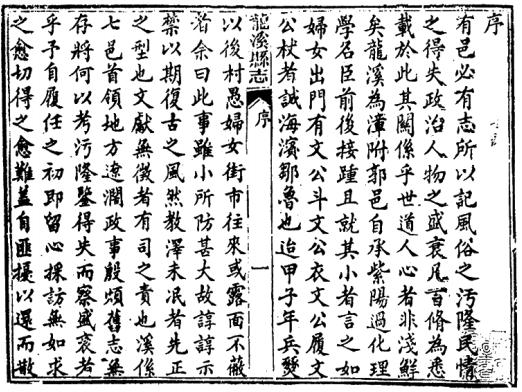 序
有邑必有志所以記風俗之汚隆民情
之得失政治人物之盛衰凡百脩為悉
載於此其關係乎世道人心者非淺鮮
矣龍溪為漳附郭邑自承紫陽過化理
學名臣前後接踵且就其小者言之如
婦女出門有文公斗文公衣文公履文
公杖者誠海濱鄒魯也迨甲子年兵燹
龍溪縣志
序
一
以後村愚婦女街市往來或露面不蔽
者余曰此事雖小所防甚大故諄諄示
禁以期復古之風然教澤未泯者先正
之型也文獻無徵者有司之責也溪係
七邑首領地方遼濶政事殷煩舊志無
存將何以考汚隆鑒得失而察盛衰者
乎予自履任之初即留心採訪無如求
之愈切得之愈難蓋自匪擾以還而散